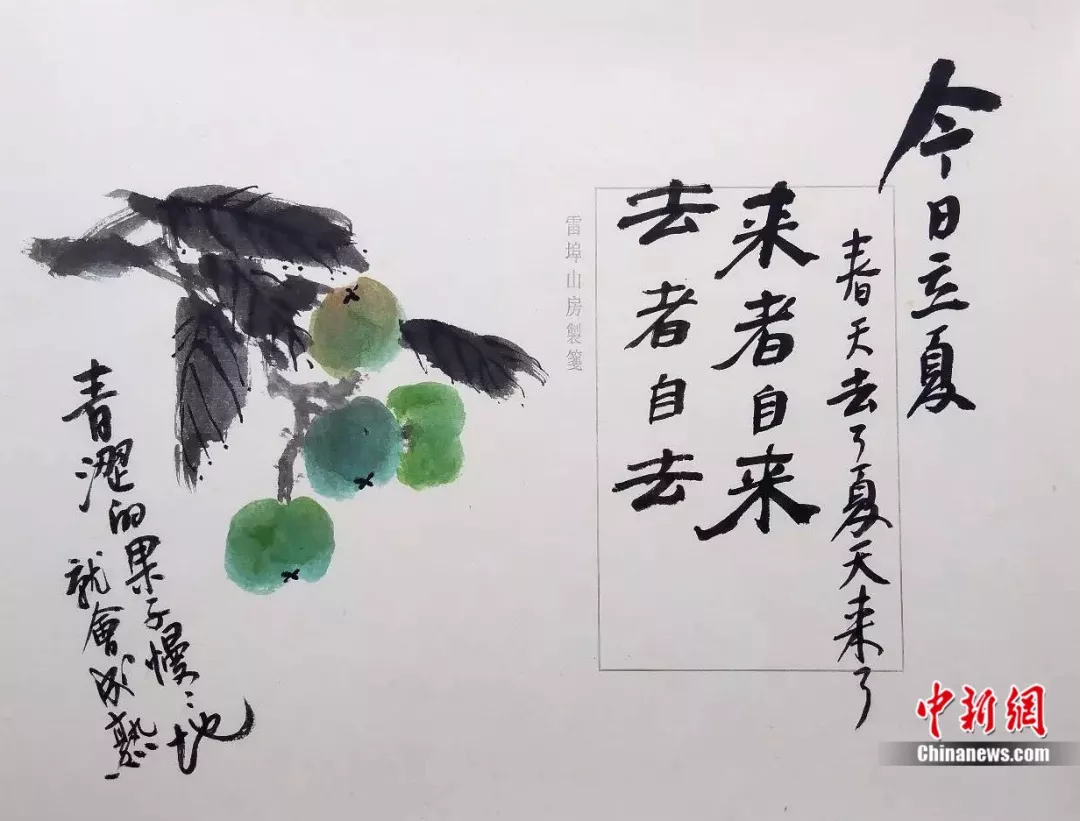 今日立夏
春天去了夏天来了
来者自来
去者自去
雷埠山房製箋
青澀的果子慢〻地
就會成熟
中新網
Chinanews.com